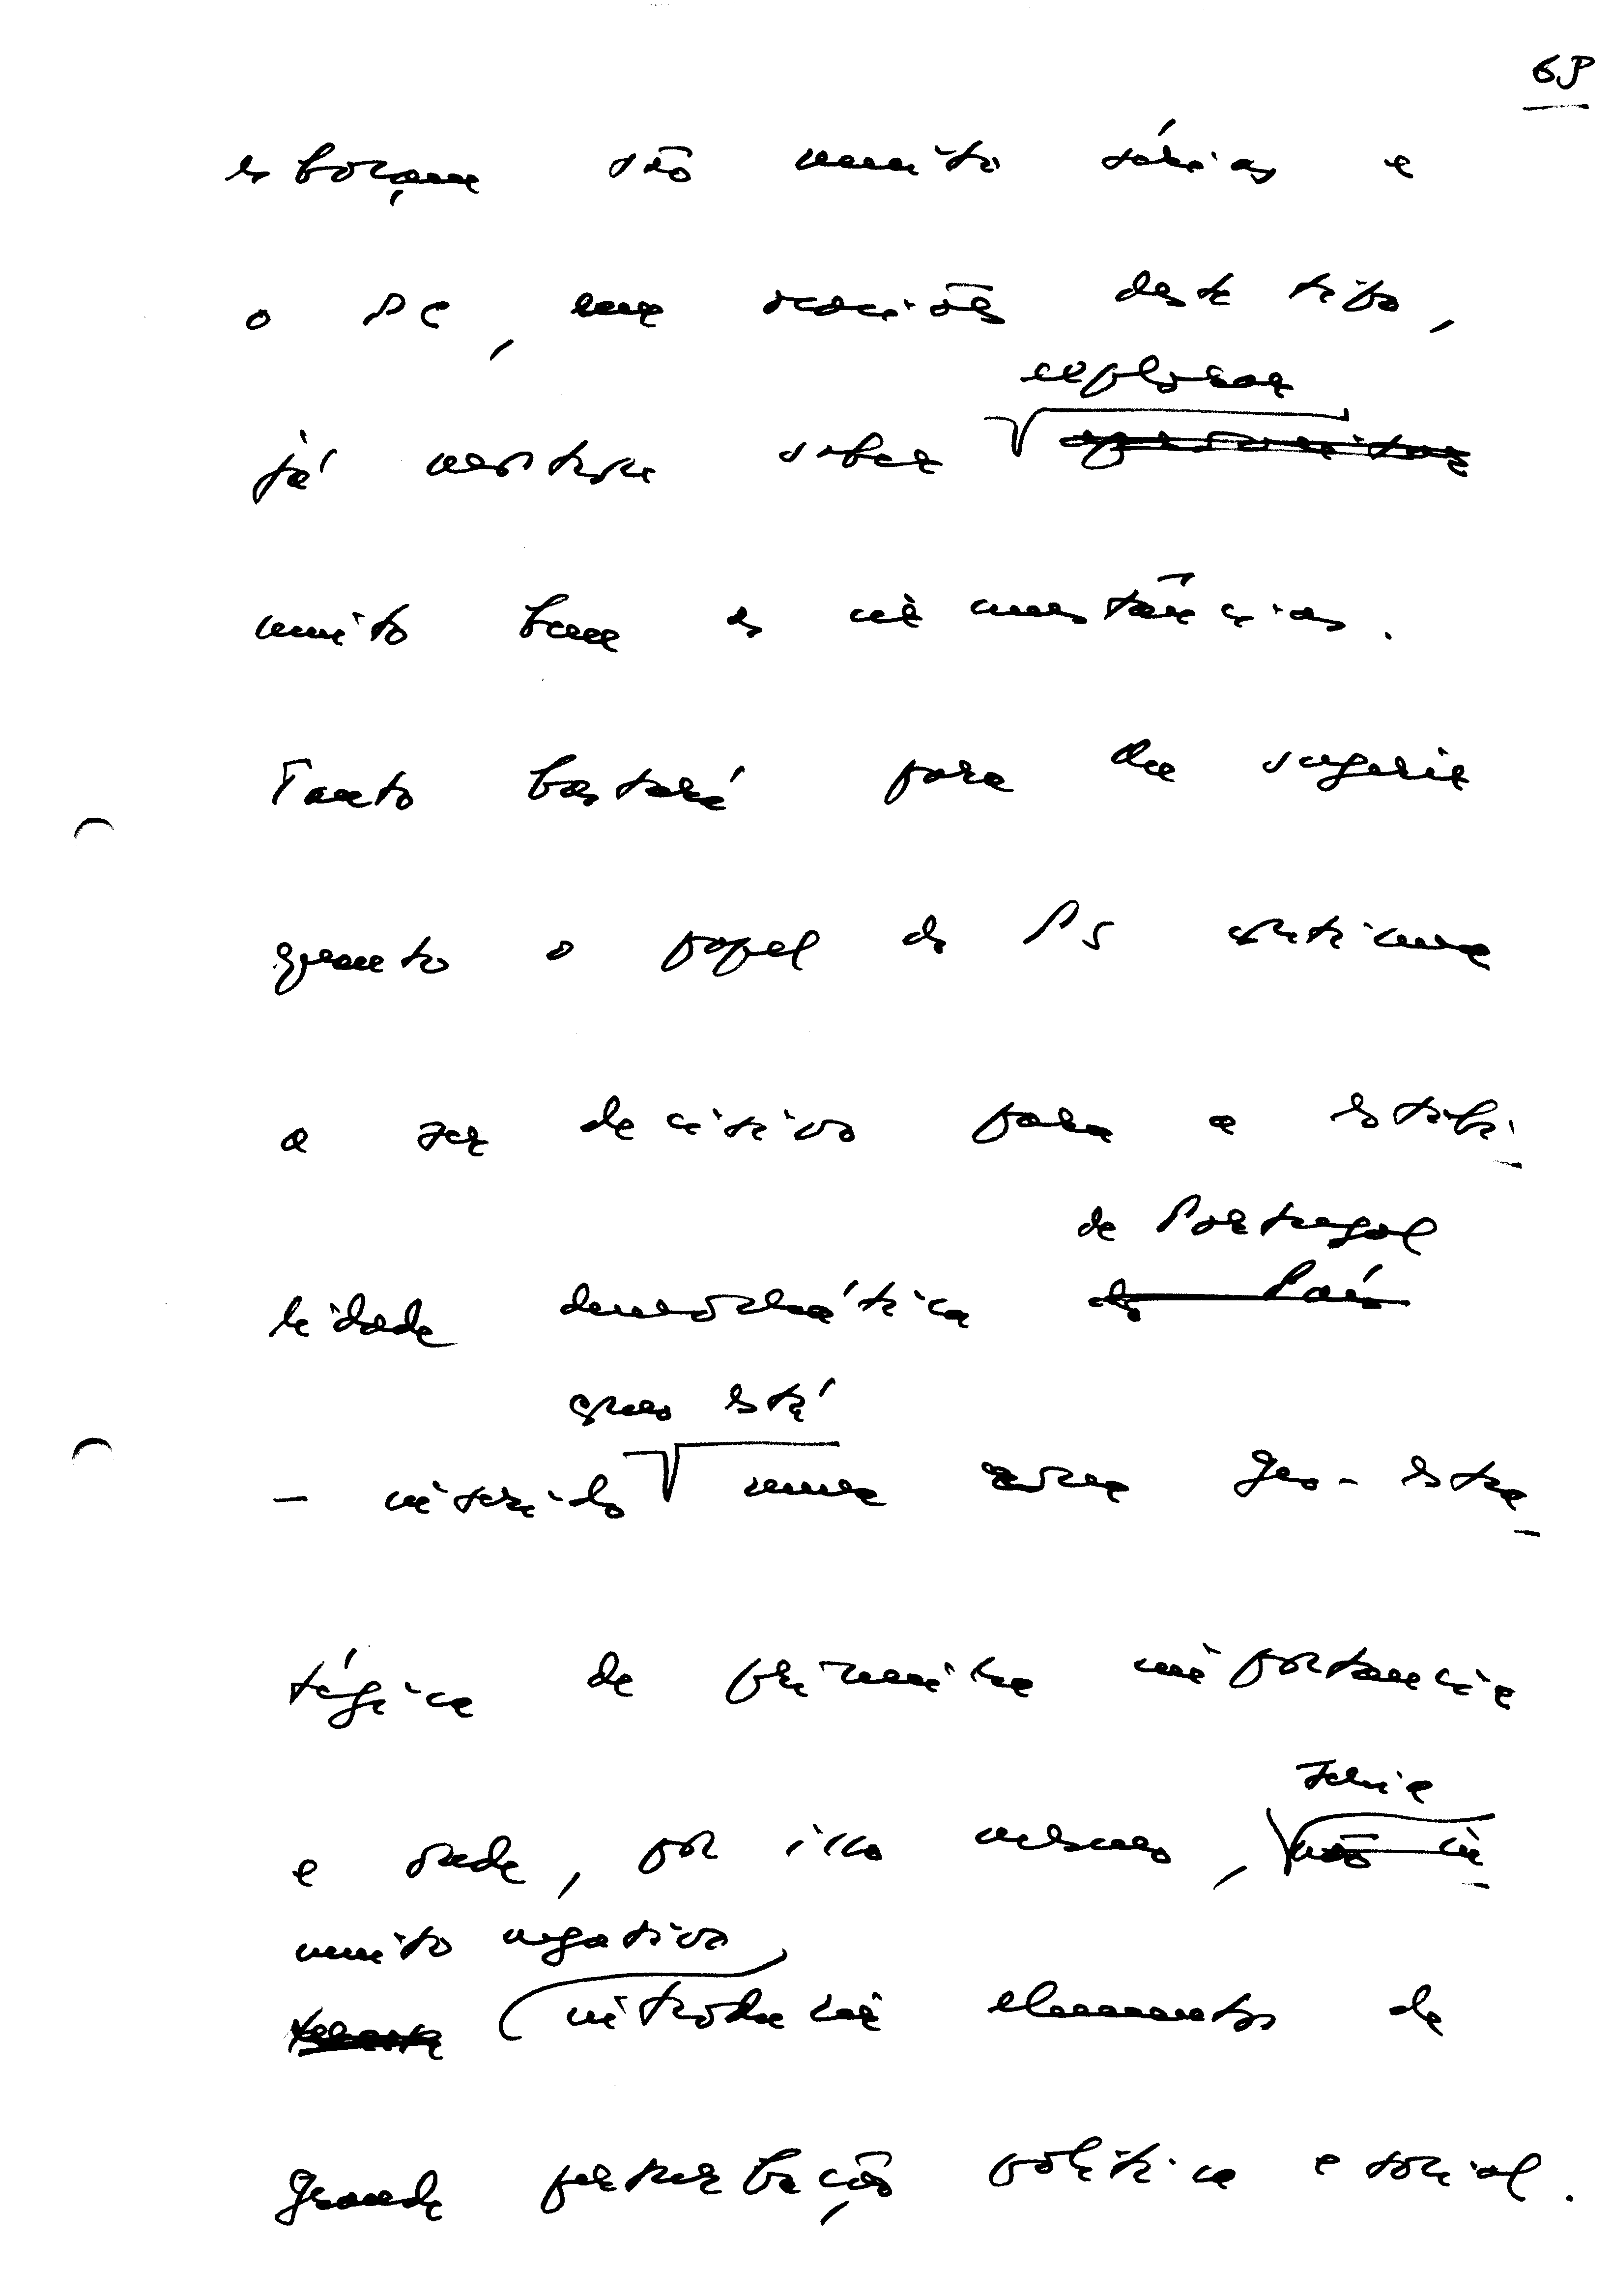 69
esboçam são muito sérias e
o PC, em ocasiões deste tipo,
explorar
já mostrou saber aproveitar
muito bem as circunstâncias.
Tanto bastará para se sugerir
quanto o papel do PS continua
a ser decisivo para a estabi-
de Portugal
lidade democrática do País
que está
- inserido numa zona geo-estra-
tégica de primeira importância
seria
e onde, por isso mesmo, não in-
muito negativo
introduzir elementos de
grande perturbação política e social.